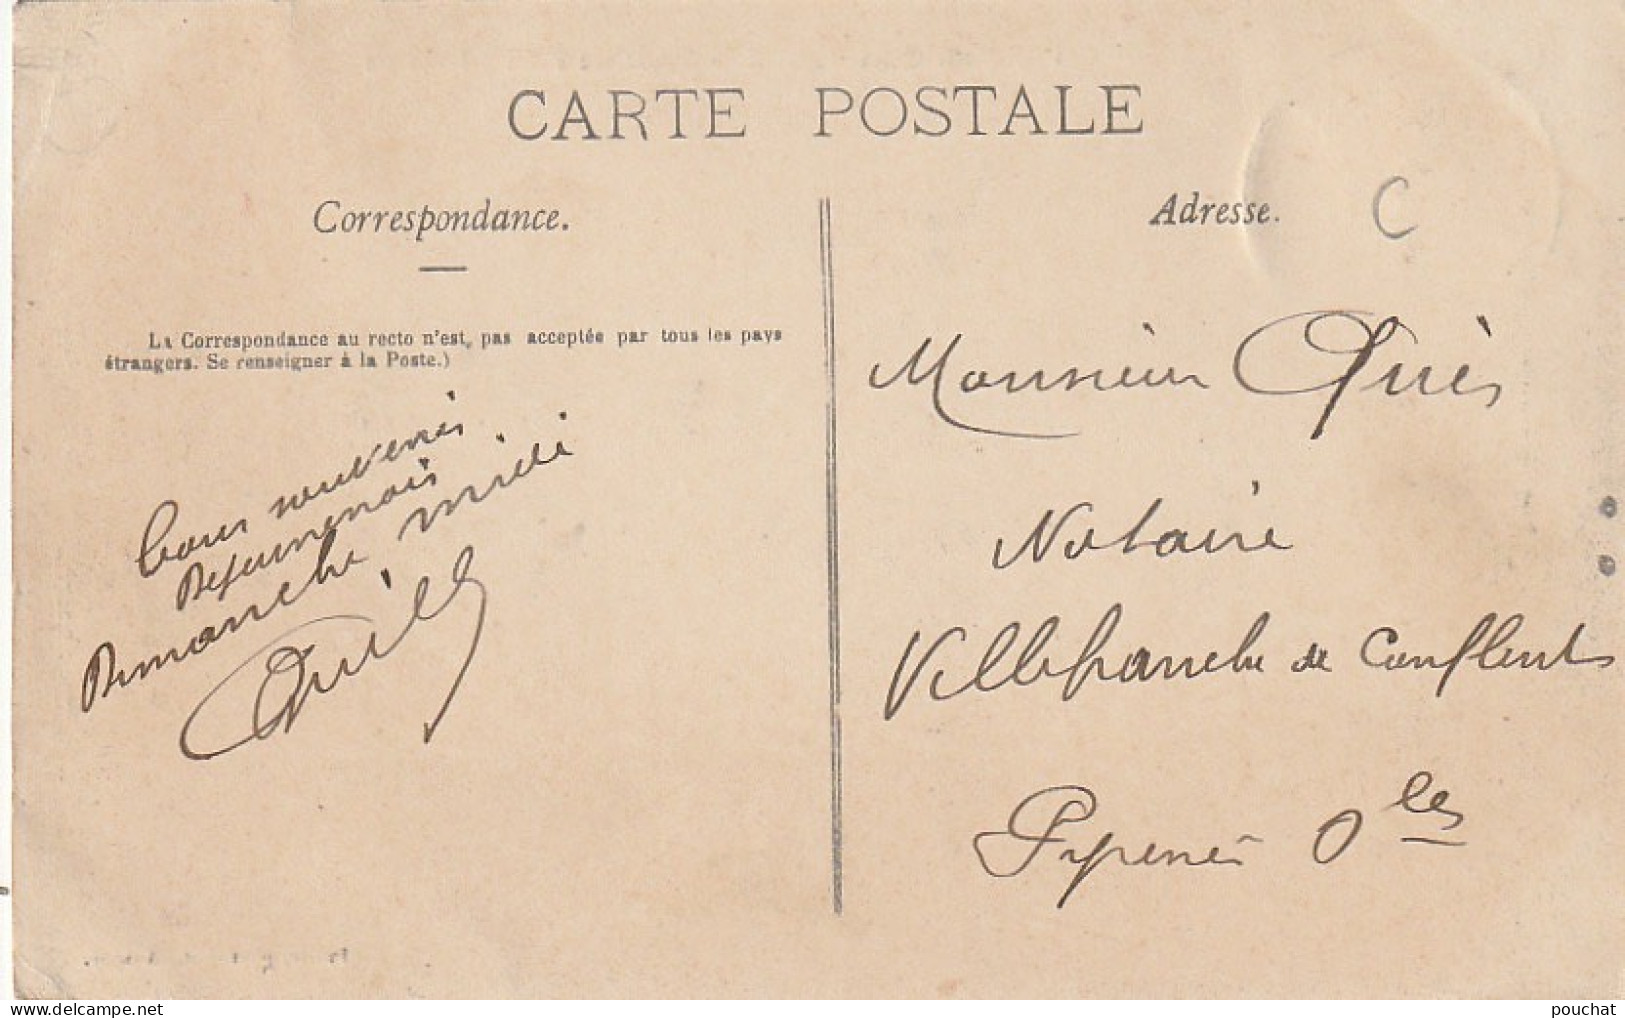 CARTE POSTALE
Correspondance.
La Correspondance au recto n'est pas acceptée par tous les pays
étrangers. Se renseigner à la Poste.)
Bons souvenirs
Dejeunerais
Dimanche, midi
Adresse.
C
Monsieur Quès
Notaire
Villefranche de Conflent
Pyrenés Oles
delcampe.net
pouchat